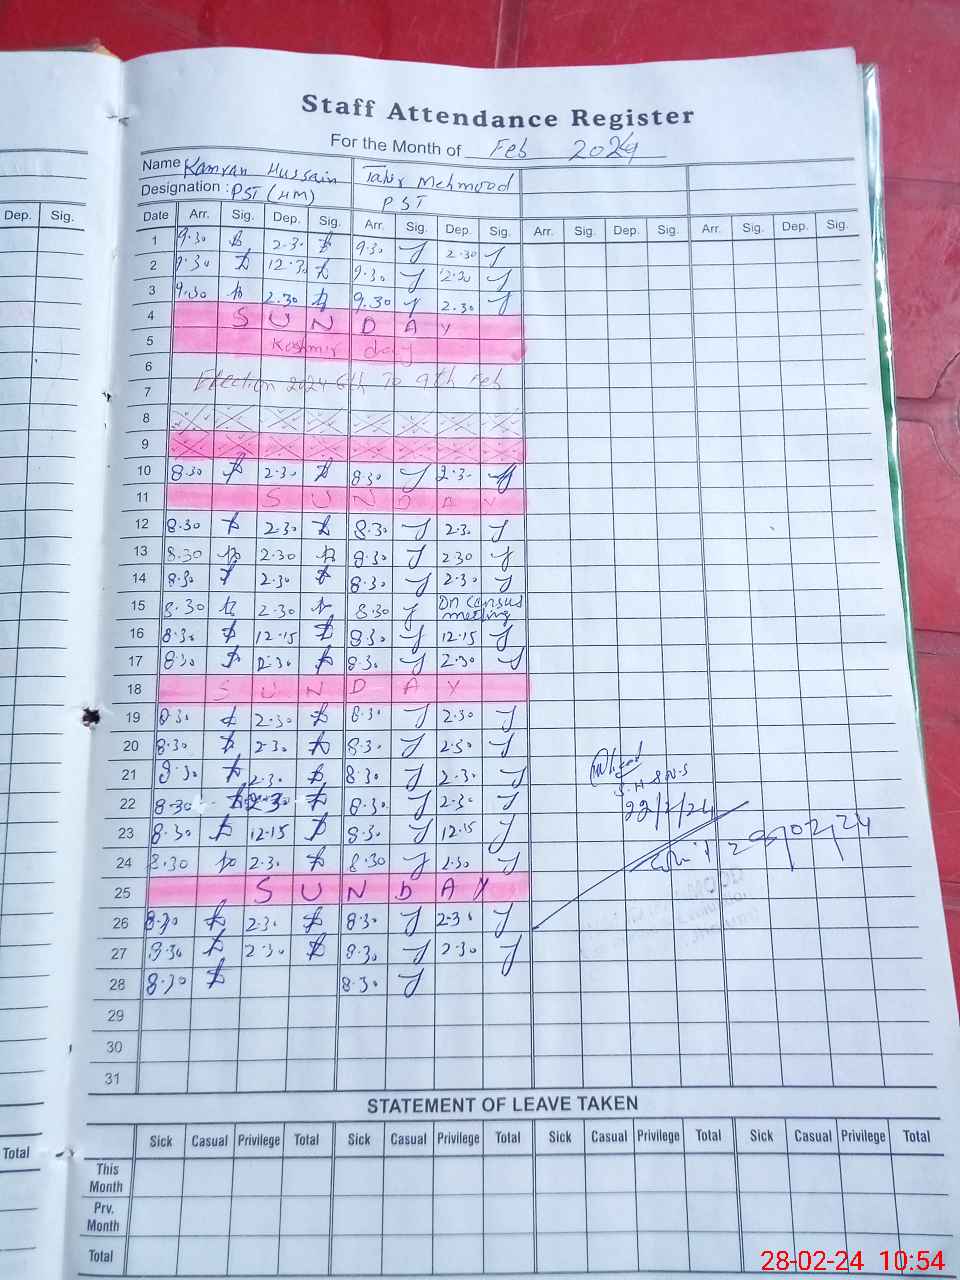 Staff Attendance Register
For the Month of Feb 2024
Name Kamran Hussain Tahir Mehmood
Designation : PST (HM) PST
Dep. Sig.
Date Arr. Sig. Dep. Sig. Arr. Sig. Dep. Sig. Arr. Sig. Dep. Sig. Arr. Sig. Dep. Sig.
1 9.30 2.30 9.30 2.30
2 9.30 12.30 9.30 12.30
3 9.30 2.30 9.30 2.30
4 SUNDAY
5 Kashmir day
6
7 Election 2024 6th To 9th Feb
8
9
10 8.30 2.30 8.30 2.30
11 SUNDAY
12 8.30 2.30 8.30 2.30
13 8.30 2.30 8.30 2.30
14 8.30 2.30 8.30 2.30
15 8.30 2.30 8.30 On census meeting
16 8.30 12.15 8.30 12.15
17 8.30 2.30 8.30 2.30
18 SUNDAY
19 8.30 2.30 8.30 2.30
20 8.30 2.30 8.30 2.30
21 8.30 2.30 8.30 2.30
22 8.30 2.30 8.30 2.30
22/2/24
23 8.30 12.15 8.30 12.15
24 8.30 2.30 8.30 2.30
25 SUNDAY
26 8.30 2.30 8.30 2.30
27 8.30 2.30 8.30 2.30
28 8.30 8.30
29
30
31
STATEMENT OF LEAVE TAKEN
Sick Casual Privilege Total Sick Casual Privilege Total Sick Casual Privilege Total Sick Casual Privilege Total
Total
This Month
Prv. Month
Total
28-02-24 10:54